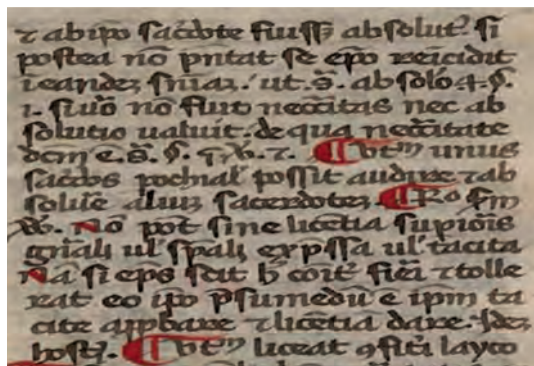 ⁊ ab ip̄o sac̄dote fuiss; absolut᷒. si
postea nō p̄ntat se ep̄o reicidit
ī eandez sn̄iaz. ut. s̄. absolō. 4. §.
1. si uō nō fuit nec̄citas nec ab
solutio ualuit. de qua nec̄citate
dc̄m ē. s̄. §. ⁊. ¶ Vtꝝ unus
sac̄dos pochial' possit audire ⁊ ab
solūe aliuz sacerdotez. ¶ Ro sm̄
Nō pōt sine licētia supiōis
gn̄ali ul' sp̄ali exp̄ssa ul' tacita
Nā si ep̄s scit h̄ cōit᷒ fiēi ⁊ tolle
rat eo ip̄o p̄sumēdū ē ip̄m ta
cite app̄bare ⁊ licētia dare. Idez
host̄. ¶ Vtꝝ liceat ꝯfitēi layco